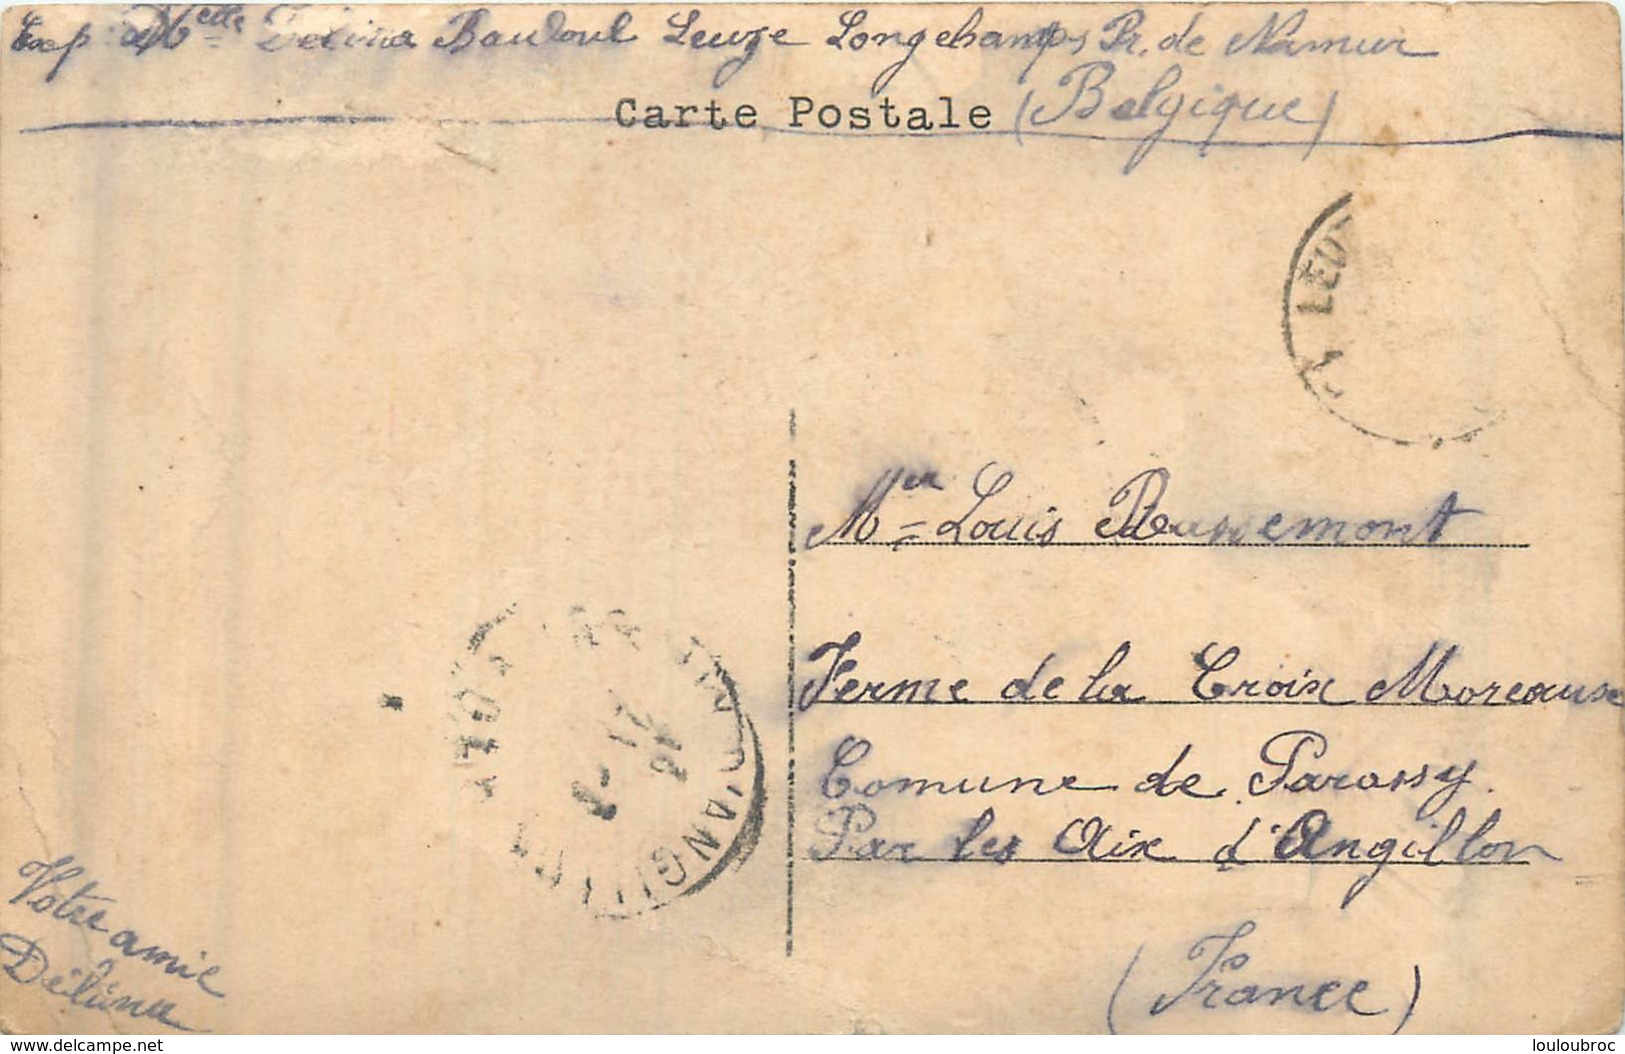 Exp : Melle Délina Baudoul Leuze Longchamps Pr. de Namur
(Belgique)
Carte Postale
LEU
Mr Louis
Ferme de la Croix Moreause
Comune de Parassy.
Par les Aix d'Angillon
(France)
D'ANGILLON
Votre amie
Délina
delcampe.net
louloubroc